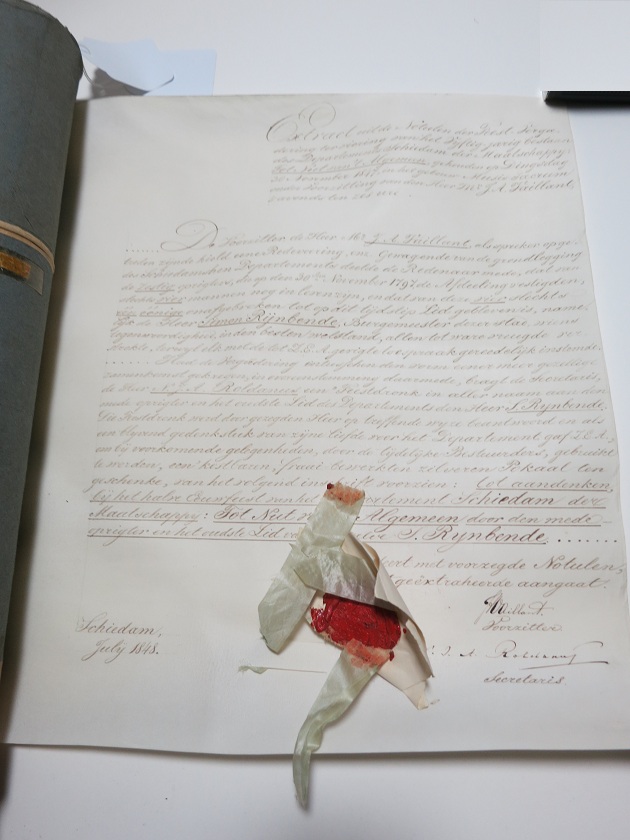 Extract uit de Notulen der Feest Verga-
dering ter viering van het Vijftig jarig bestaan
des Departements Schiedam der Maatschappij:
Tot Nut van 't Algemeen, gehouden op Dingsdag
30 November 1847, in het gebouw Musis Sacrum
onder Voorzitting van den Heer Mr. J. A. Vaillant,
's avonds ten ure.
De Voorzitter de Heer Mr. J. A. Vaillant, als spreker opge-
treden zijnde hield eene Redevoering, en Gewagende van de grondlegging
des Schiedamschen Departements deelde de Redenaar mede, dat van
de zestig oprigters, die op den 30sten November 1797 de Afdeeling vestigden,
slechts vier mannen nog in leven zijn, en dat van deze vier slechts
één eenige onafgebroken tot op dit tijdstip Lid gebleven is, name-
lijk de Heer Simon Rijnbende, Burgemeester dezer Stad,
tegenwoordigheid, in den besten welstand, allen tot ware vreugde ver-
strekte, terwijl elk met de tot Z.E.A. gerigte toespraak gereedelijk instemde.
Nadat de Vergadering intusschen den vorm eener meer gezellige
zamenkomst gekregen, in overeenstemming daarmede, bragt de Secretaris,
de Heer een Feestdronk in aller naam aan den
mede-oprigter en het oudste Lid des Departements den Heer S. Rynbende.
Die Feestdronk werd door gezegden Heer op treffende wyze beantwoord en als
een blyvend gedenkstuk van zyne liefde voor het Departement gaf Z.E.A.,
om by voorkomende gelegenheden, door de tydelyke Bestuurders, gebruikt
te worden, een' kostbaren, fraai bewerkten zilveren Pokaal ten
geschenke, van het volgend inschrift voorzien: tot aandenken,
bij het halve Eeuwfeest van het Departement Schiedam der
Maatschappy: Tot Nut van 't Algemeen door den mede-
oprigter en het oudste Lid S. Rynbende.
met voorzegde Notulen,
geëxtraheerde aangaat.
Schiedam,
July 1848.
JAVaillant.
Voorzitter
Secretaris.